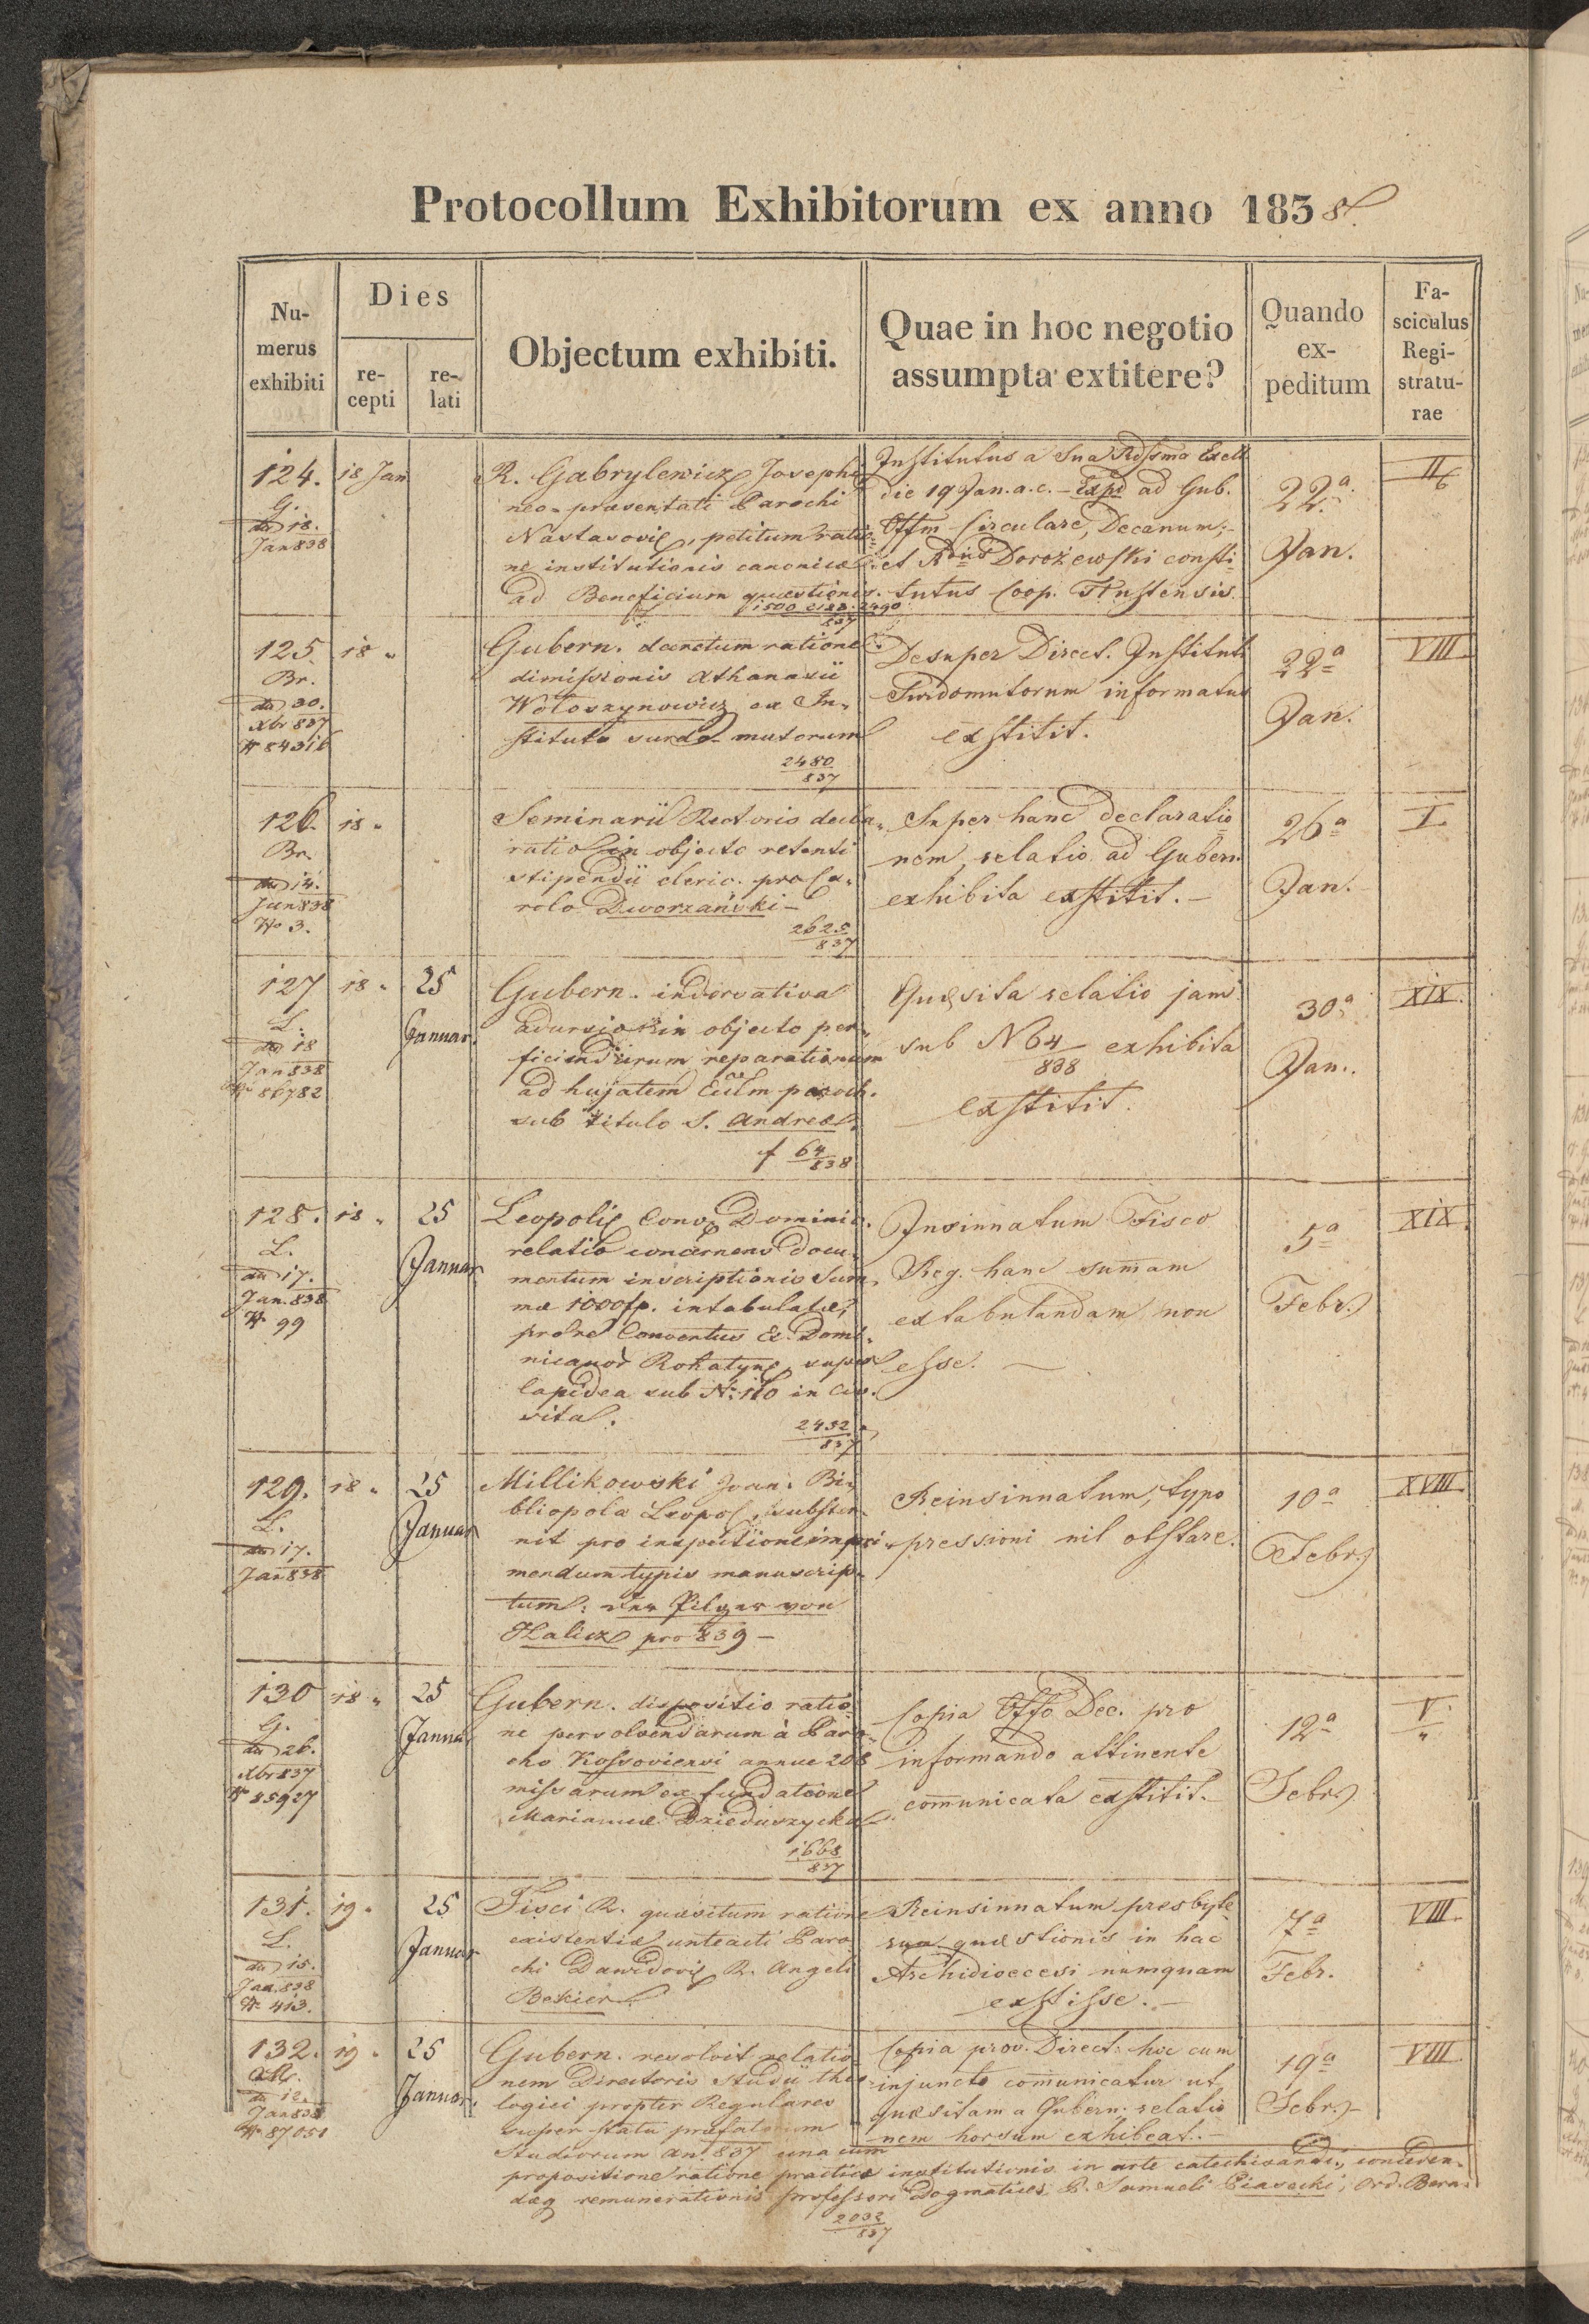 Protocollum Exhibitorum ex anno 1838.
Nu-
merus
exhibiti
Dies
re-
cepti
re-
lati
Objectum exhibiti.
Quae in hoc negotio
assumpta extitere?
Quando
ex-
peditum
Fa-
sciculus
Regi-
stratu-
rae
124.
G.
dto 18.
Jan 838
18 Jan
R. Gabrylewicz Josephi
neo-praesentati Parochi
Nastasoviae, petitum ratio-
ne institutionis canonicae
ad Beneficium quaestionis.
1500 2490
837
Institutus a Sua Rdssma Excell
die 19 Jan. a.c. – Expd ad Gub.
Offm Circulare, Decanum;
et Rdus Dorożewski consti-
tutus Coop. Tlustensis.
22a
Jan.
II
6
125.
Br.
dto 30.
Xbr 837
N 84316
18 "
Gubern. decretum ratione
dimissionis Athanasii
Wołoszynowicz ex In-
stituto surdo-mutorum
2480
837
Desuper Direct. Instituti
Surdomutorum informatus
exstitit.
22a
Jan.
VIII
126.
Br.
dto 14.
Jan 838
No 3.
18 "
Seminarii Rectoris decla-
ratio in objecto retenti
stipendii cleric. pro Ca-
rolo Dworzański –
2625
837
Super hanc declaratio
nem, relatio ad Gubern.
exhibita exstitit. –
26a
Jan.
I.
127
L.
dto 18
Jan 838
N 86782
18 "
25
Januar.
Gubern. indorsativa
adursio in objecto per-
ficiendarum reparationum
ad hujatem Eccl̃m paroch.
sub titulo S. Andreae.
f 64
838
Quaesita relatio jam
sub N 64
838
exhibita
exstitit.
30a
Jan.
XIX.
128.
L.
dto 17.
Jan. 838
N 99
18 "
25
Januar
Leopoliae Convo Dominic.
relatio concernens docu-
mentum inscriptionis Sum-
mae 1000 fp. intabulatae,
pro re Conventus Ex-Domi-
nicanor̃ Rohatynae, super
lapidea sub N: 110 in Ci-
vital.
2432
837
Insinuatum Fisco
Reg. hanc sum̃am
extabulandam non
esse. —
5a
Febr.
XIX.
129.
L.
dto 17.
Jan 838
18 "
25
Januar
Millikowski Joan. Bi-
bliopola Leopol., subster-
nit pro inspectione impri-
mendum typis manuscrip-
tum: der Pilger von
Halicz pro 839 –
Reinsinuatum, typo
pressioni nil obstare.
10a
Febr.
XVIII
130
G.
dto 26.
Xbr 837
N 85927
18 "
25
Januar
Gubern. dispositio ratio-
ne persolvendarum à Paro-
cho Kossoviensi annue 208
missarum ex fundatione
Mariannae Dzieduszycka.
1668
837
Copia Offo Dec. pro
informando attinente
com̃unicata exstitit.
12a
Febr.
V
"
131.
L.
dto 15.
Jan. 838
N 413.
19 "
25
Januar
Fisci R. quaesitum ratione
existentiae anteacti Paro-
chi Dawidoviae R. Angeli
Bekier.
Reinsinuatum presbyte
rum quaestionis in hac
Archidioecesi numquam
exstisse. –
7a
Febr.
VIII.
132.
dto 12.
Jan 838
N. 87051
19 "
25
Januar.
Gubern. resolvit relatio-
nem Directoris Studii theo-
logici propter Regulares
super statu praefatorum
Studiorum an. 837 una cum
propositione ratione practicae institutionis in arte catechisandi, conceden-
daeq remunerationis professori Dogmatices P. Samueli Piasecki, Ord. Bern:
2032
837
Copia prov. Direct. hoc cum
injuncto com̃unicatur ut
quaesitam a Gubern. relatio
nem horsum exhibeat. –
19a
Febr.
VIII.